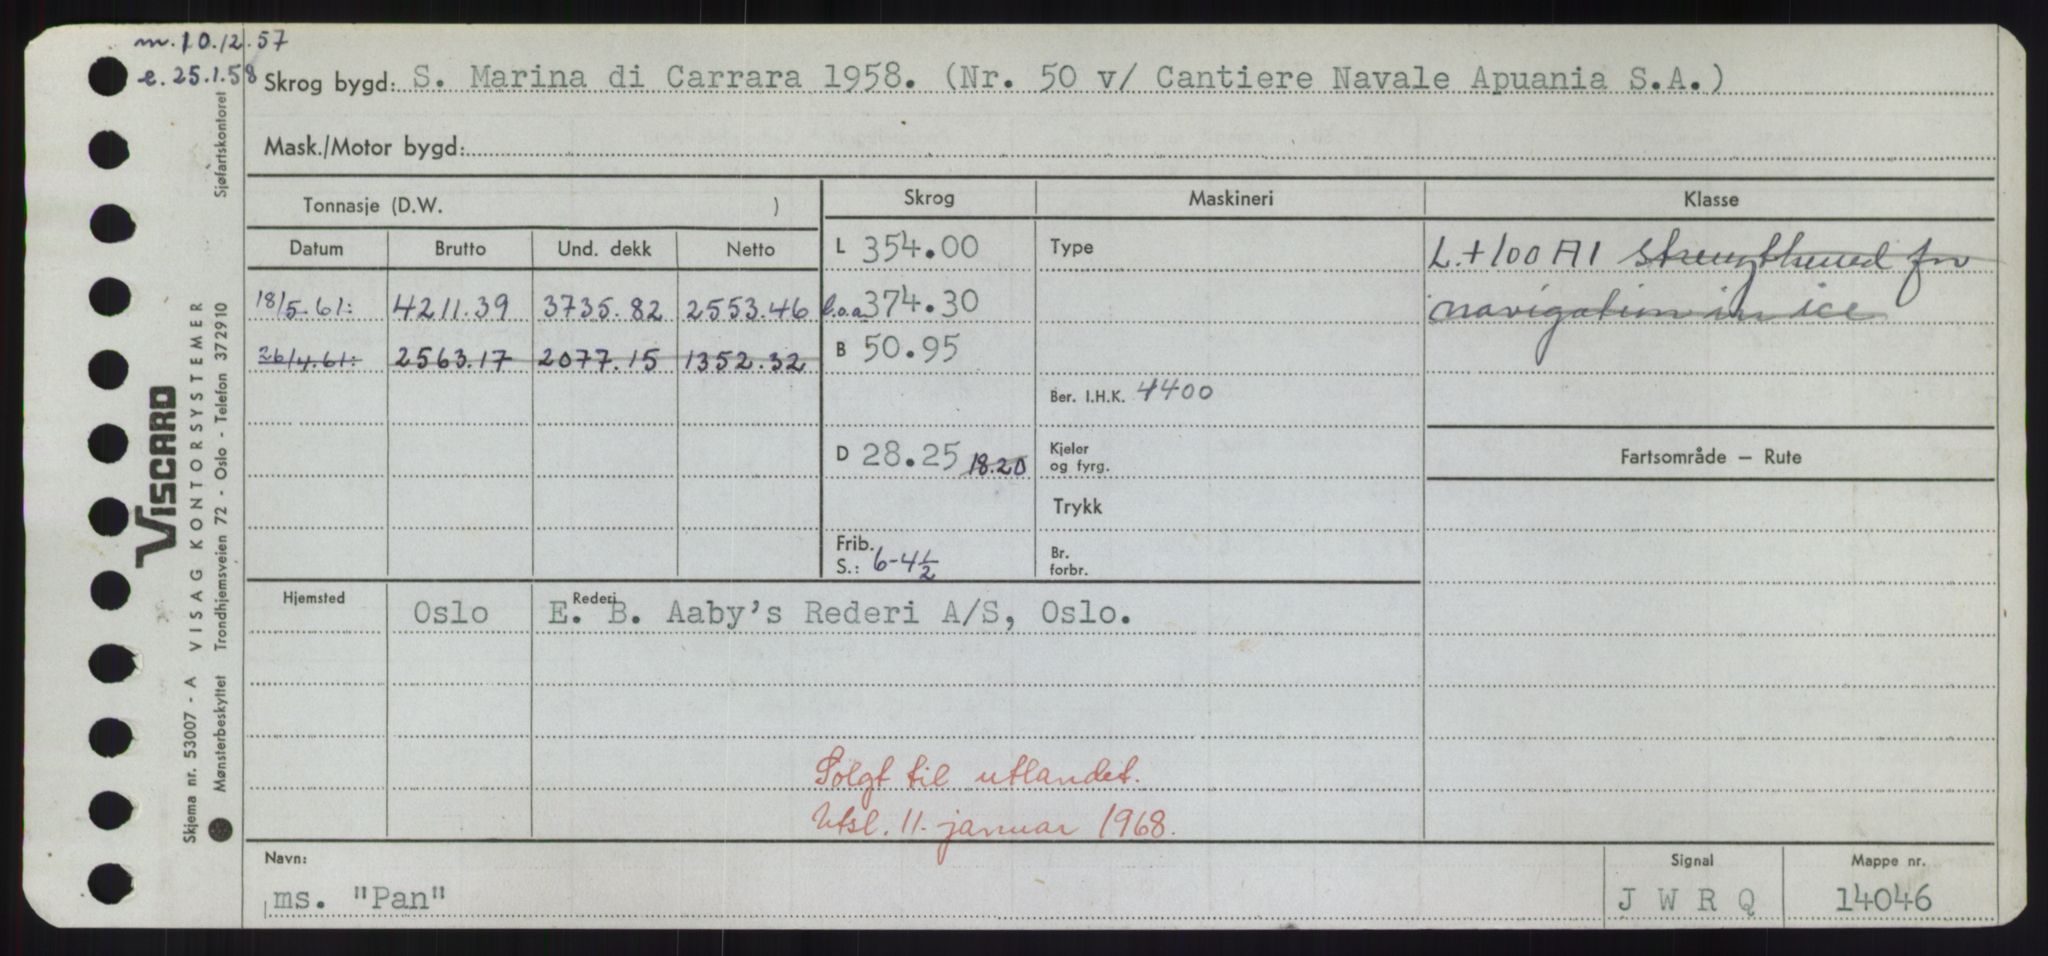 m. 10.12.57
e. 25.1.58
Skrog bygd: S. Marina di Carrara 1958. (Nr. 50 v/ Cantiere Navale Apuania S.A.)
Mask./Motor bygd:
Tonnasje (D.W. )
Skrog Maskineri Klasse
Datum Brutto Und. dekk Netto
L 354.00 Type L.+100 A1 strengthened for
18/5.61: 4211.39 3735.82 2553.46 l.o.a. 374.30 navigation in ice
26/4.61: 2563.17 2077.15 1352.32 B 50.95
Ber. I.H.K. 4400
D 28.25 18.20 Kjeler
og fyrg.
Fartsområde — Rute
Trykk
Frib.
S.: 6-4½
Br.
forbr.
Hjemsted Oslo Rederi E. B. Aaby's Rederi A/S, Oslo.
Solgt til utlandet.
Utsl. 11. januar 1968.
Navn: ms. "Pan"
Signal J W R Q
Mappe nr. 14046
VISCARD
VISAG KONTORSYSTEMER
Trondhjemsveien 72 - Oslo - Telefon 372910
Skjema nr. 53007 - A
Mønsterbeskyttet
Sjøfartskontoret